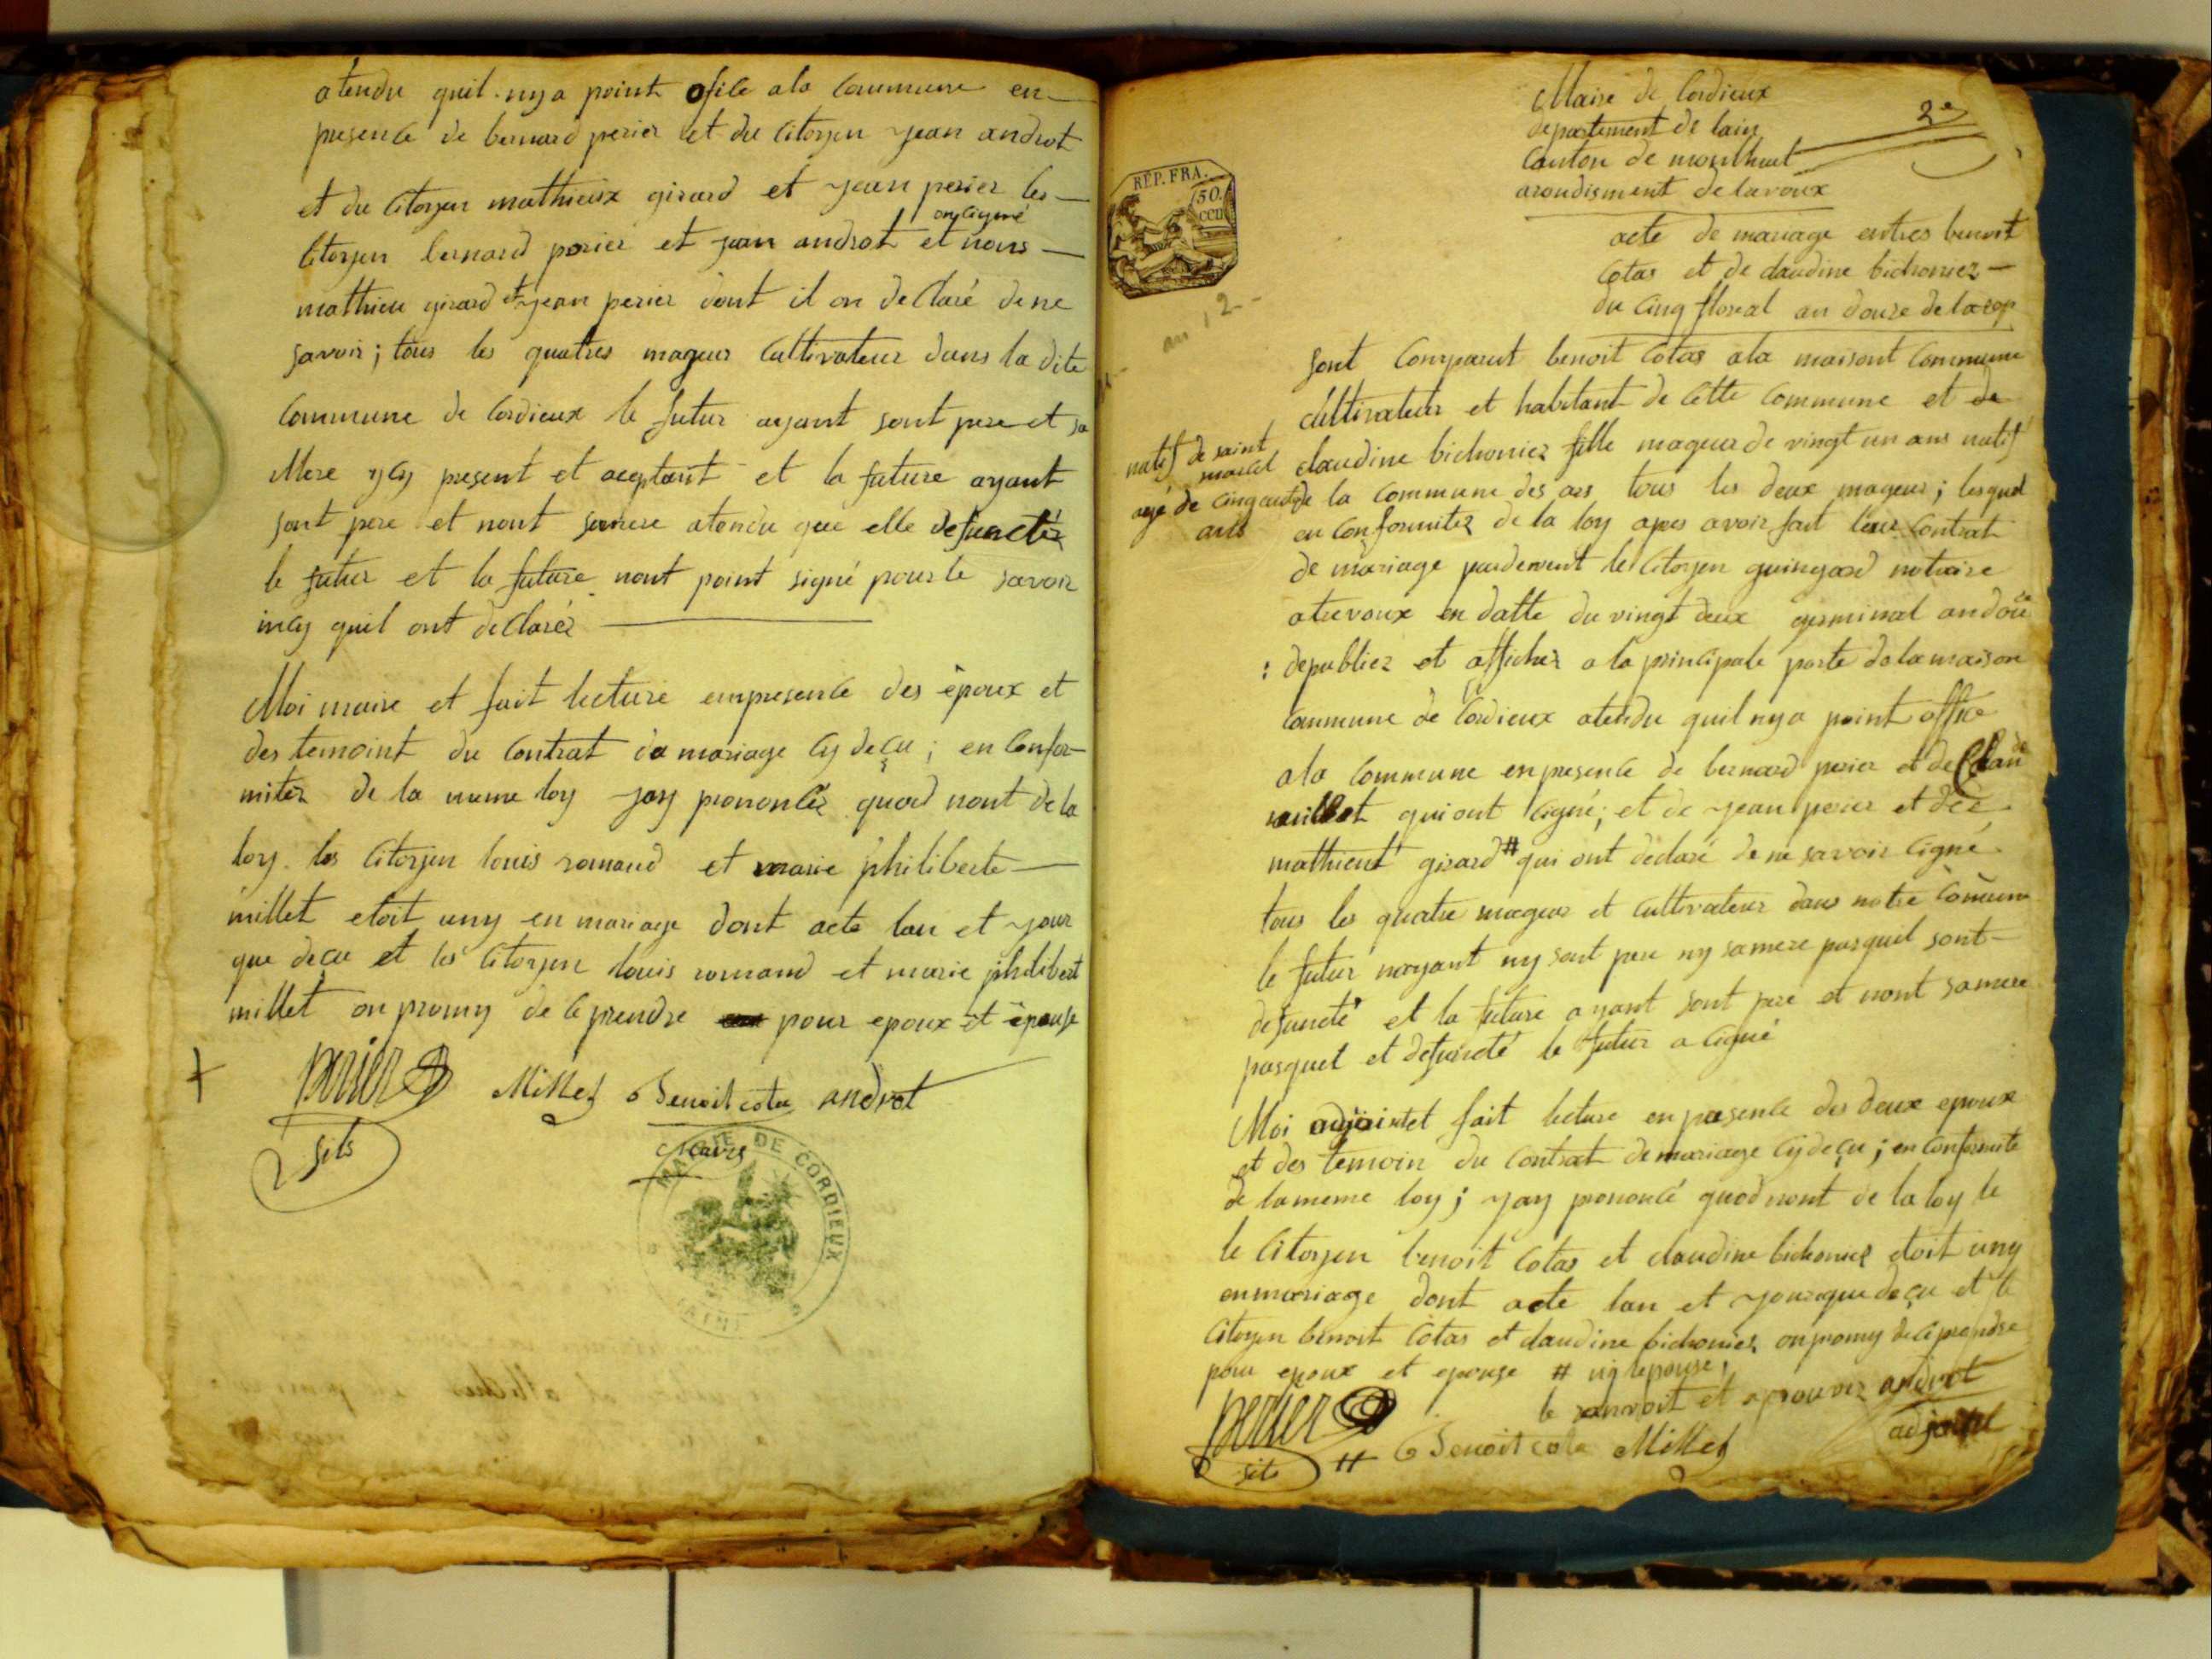 atendu quil nya point ofile ala Commune en
presence de bernard perier et du Citoyen jean androt
et du Citoyen mathieux girard et jean perier les
on cigné
Citoyen bernard perier et jean androt et nous
mathieu girard et jean perier dont il on declaré de ne
savoir ; tous les quatres mageur Cultivateur dans la dite
Commune de Cordieux le futur ayant sont pere et sa
Mere ycy present et aceptant et la future ayant
sont pere et nont samere atendu que elle defunctéz
le futur et la future nont point signé pour le savoir
incy quil ont declaréz
Moi maire et fait lecture empresence des époux et
des temoint du Contrat de mariage Cy deçu ; en Confor-
mitéz de la meme loy jay prononcéz quod nont de la
loy les Citoyen louis romand et marie philiberte
millet etoit uny en mariage dont acte lan et jour
que deçu et les Citoyen louis romand et marie philibert
millet on promy de ce prendre pour epoux et épouse
perier Millet Benoit cotas androt
sits Maire
MAIRIE DE CORDIEUX
(AIN)
Maire de Cordieux
departement de lain
2e
Canton de monthuel
arondisment de lavoux
REP. FRA.
50.
CEN
an 12
acte de mariage entres benoit
Cotas et de claudine bichoniez
du Cinq floreal an douze de la rep
sont Comparut benoit Cotas ala maisont Commune
cultivateur et habitant de Cette Commune et de
natif de saint
marcel
claudine bichoniez fille mageur de vingt un ans natif
agé de Cinquante
de la Commune des ars tous les deux mageur ; lesquel
ans
en Conformitéz de la loy apres avoir fait leur Contrat
de mariage pardevent le Citoyen guinyard notaire
atrevoux en datte du vingt deux germinal an douze
: depubliez et affichez a la principale porte de la maison
Commune de Cordieux atendu quil nya point office
ala Commune en presence de bernard perier et de Claude
millet qui ont cigné ; et de jean perier et de
mathieut girard # qui ont declaré de ne savoir cigné
tous les quatre mageur et Cultivateur dans notre Comune
le futur nayant ny sont pere ny samere pasquil sont
defuncté et la future ayant sont pere et nont samere
pasquel et defuncté le futur a cigné
Moi adjointet fait lecture en presence des deux epoux
et des temoin du Contrat de mariage Cy deçu ; en Conformité
de la meme loy ; jay prononcé quod nont de la loy le
le Citoyen benoit Cotas et claudine bichoniez etoit uny
en mariage dont acte lan et jour que deçu et le
Citoyen benoit Cotas et claudine bichoniez on promy de ce prendre
pour epoux et epouse #
le renvoit et aprouvez androt
perier adjoint
sits # Benoit cota Millet